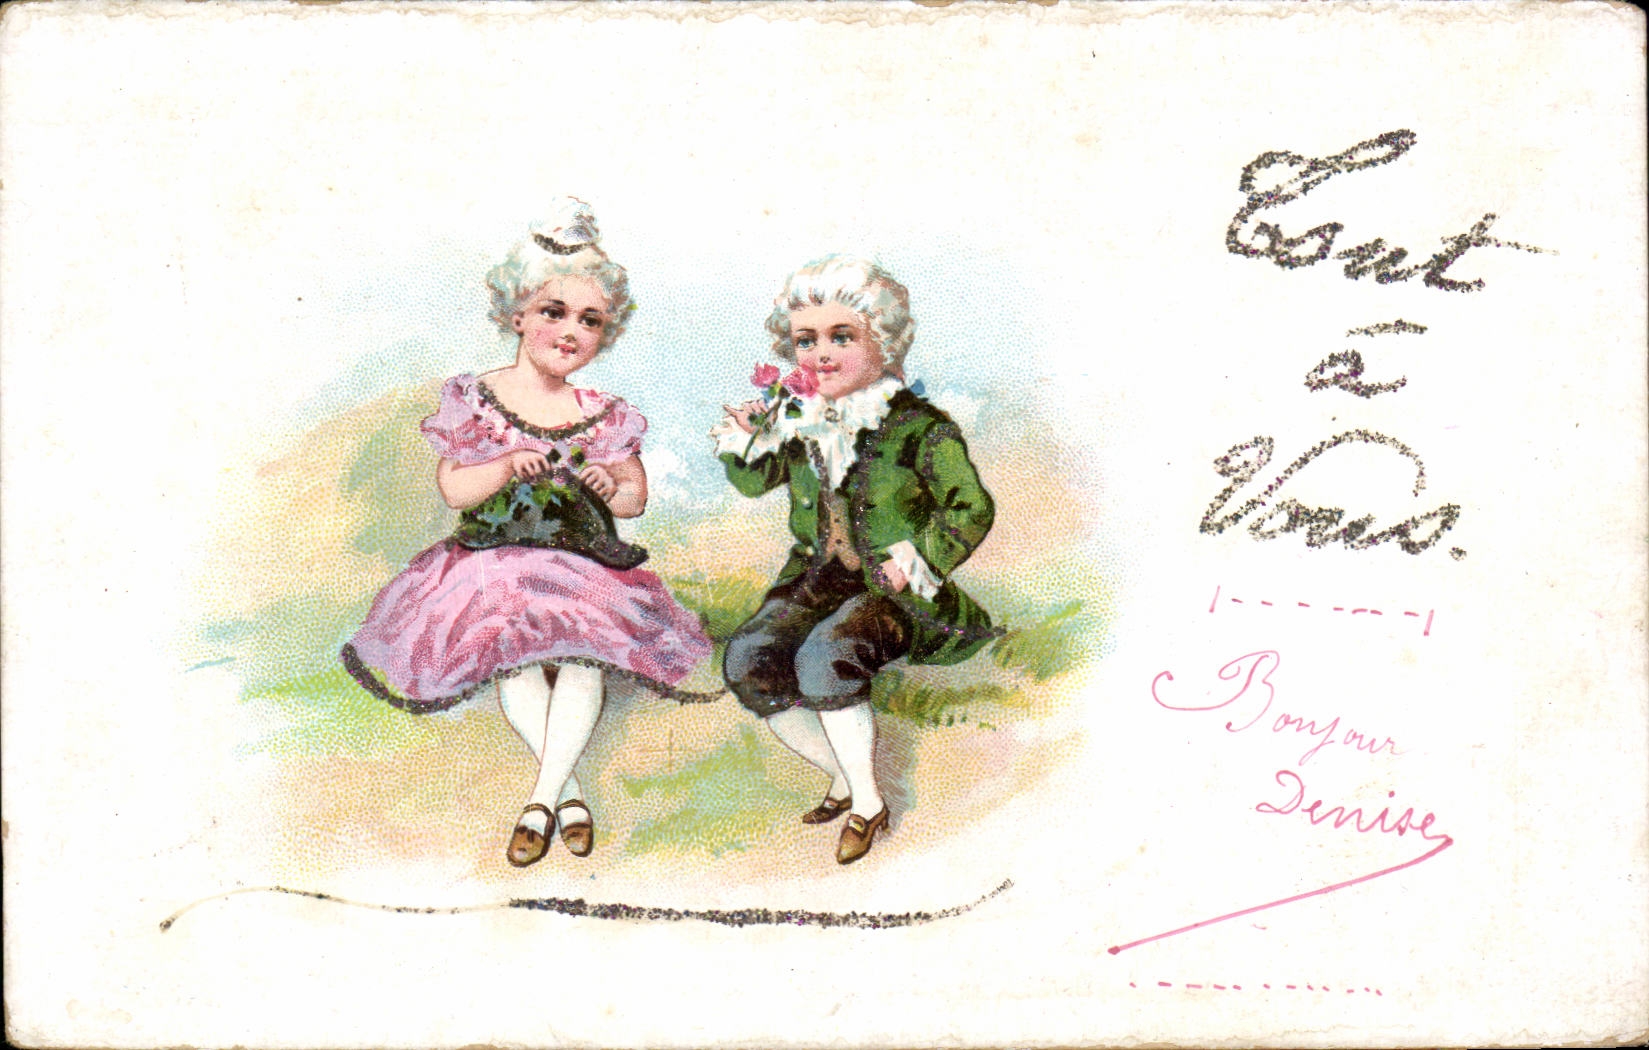 Tout
à
Vous.
Bonjour
Denise